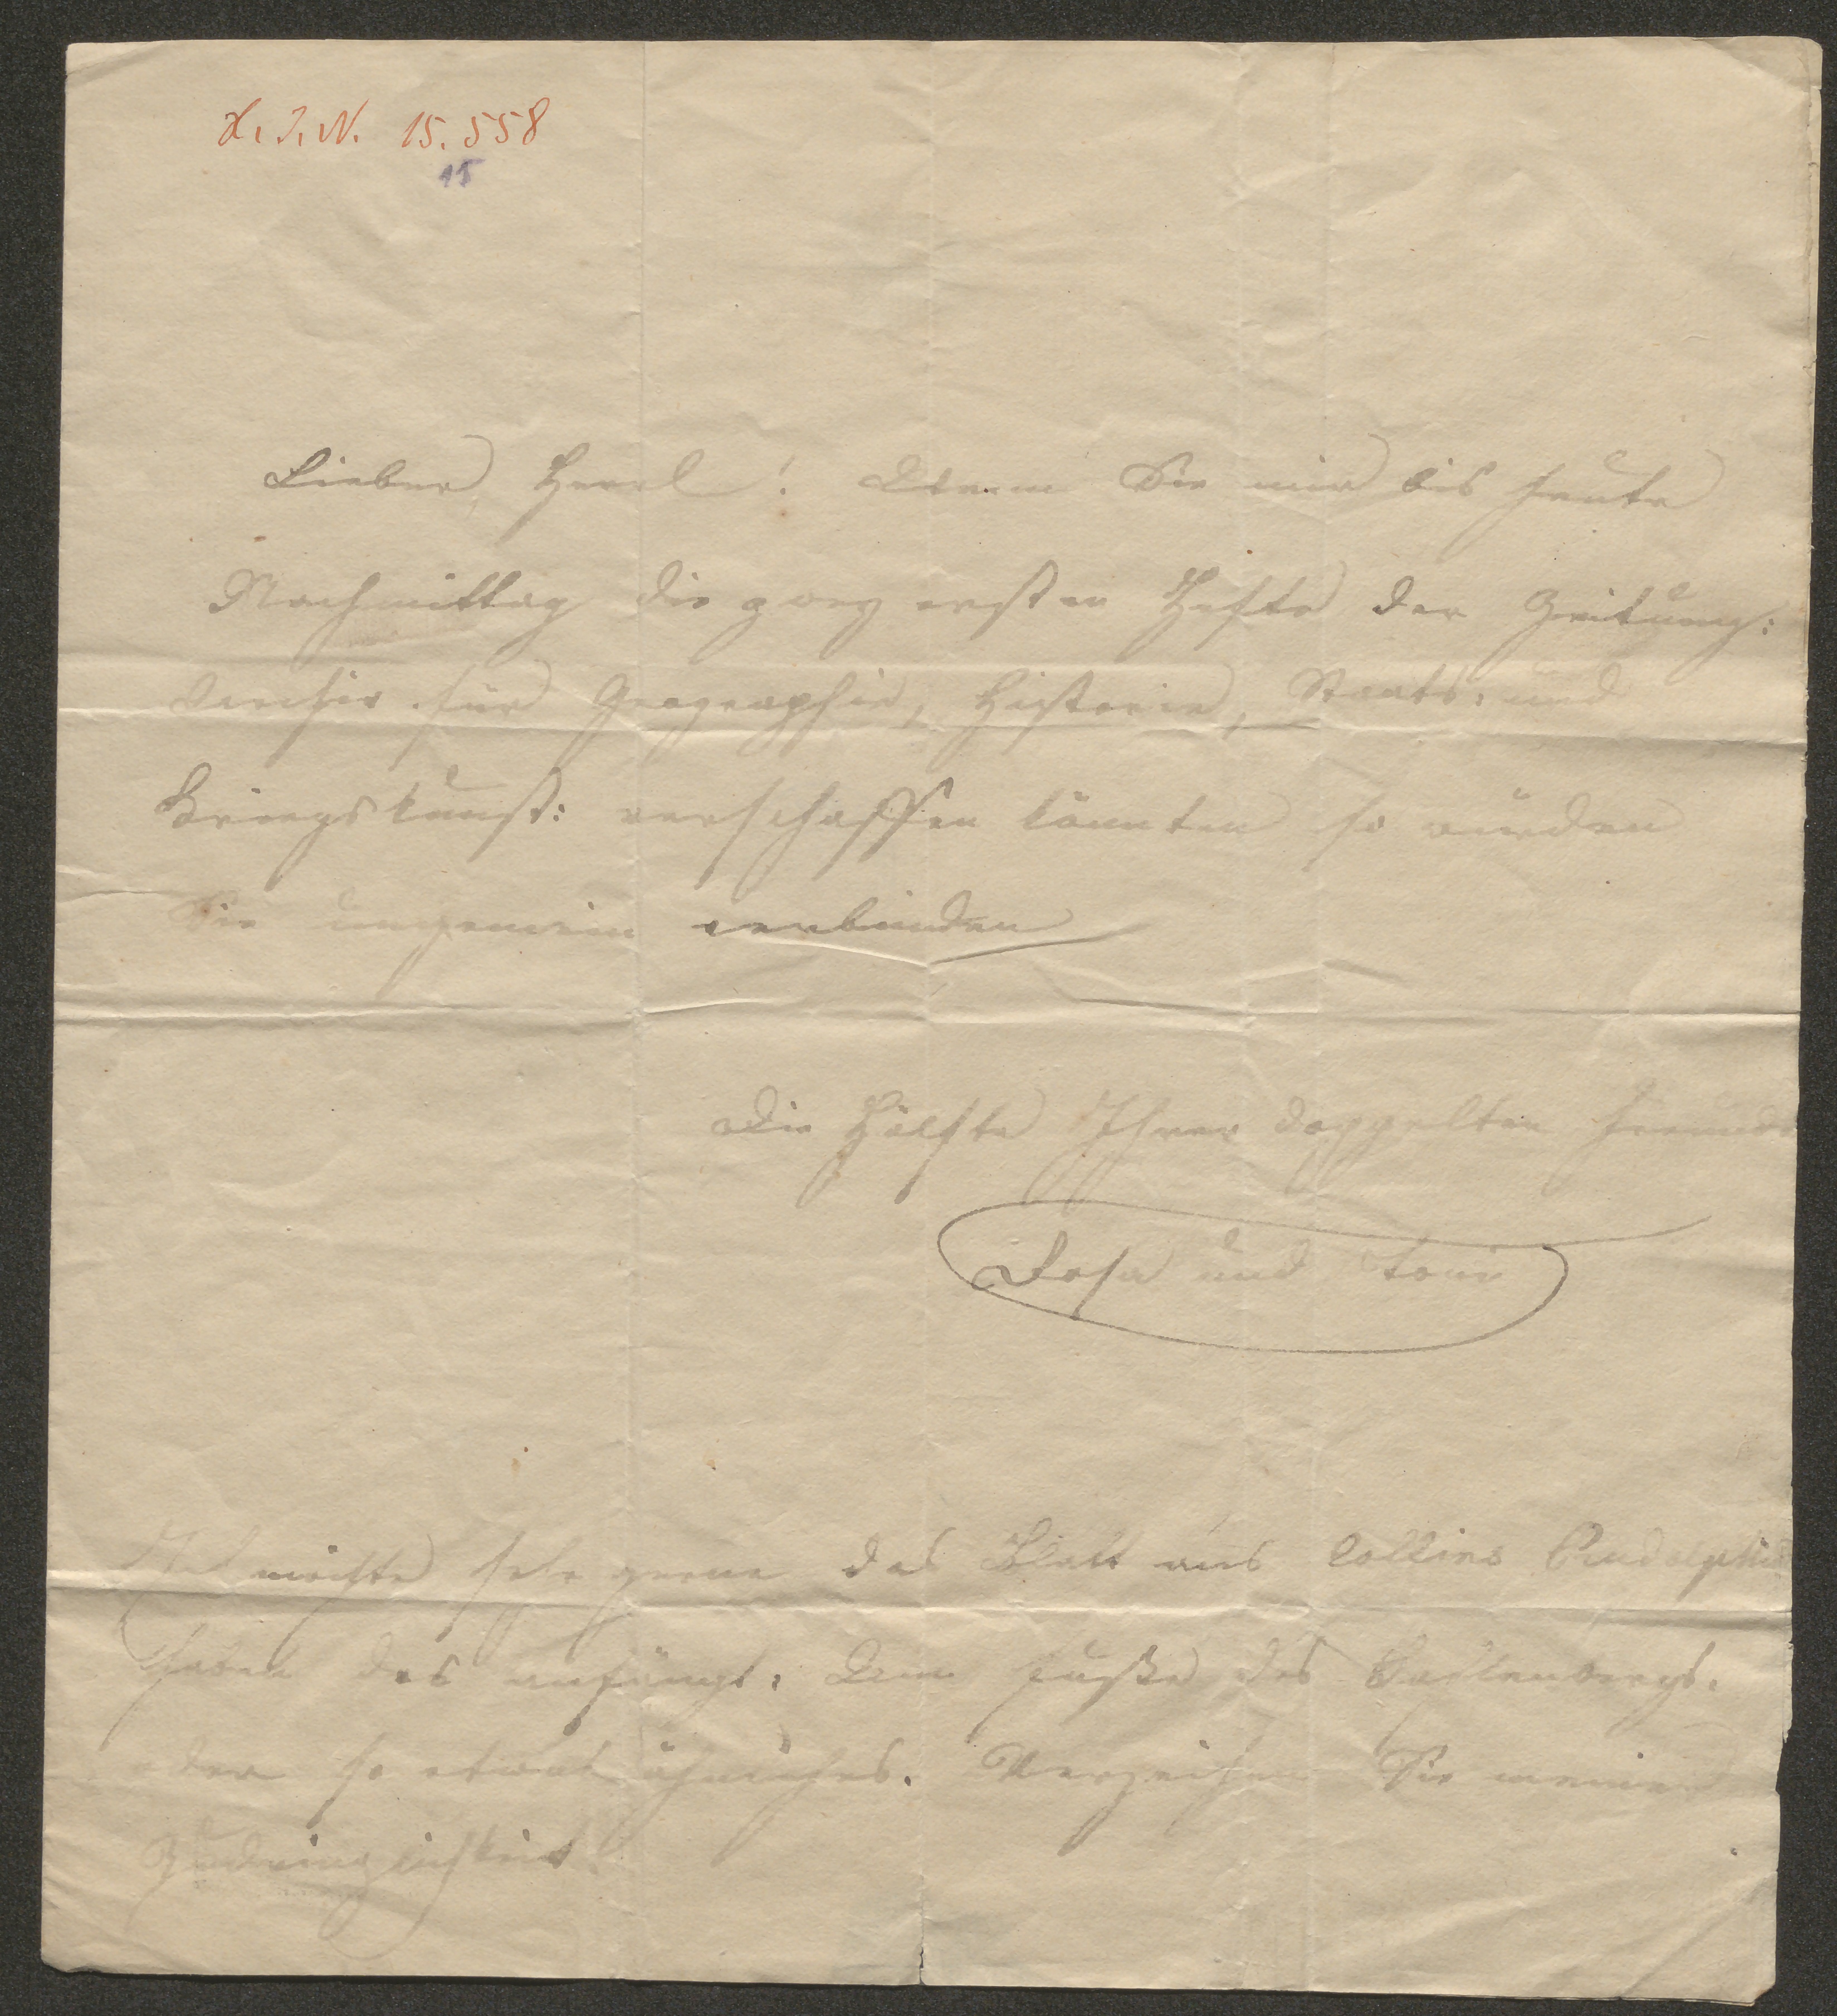 H. I. N. 15.558
15
Lieber Herrl! Wenn Sie mir bis heute
Nachmittag die zwey ersten Hefte der Zeitung:
Archiv für Geographie, Historie, Staats- und
Kriegskunst: verschaffen könnten so würden
Sie ungemein verbinden
Die Hälfte Ihrer doppelten Freunde
und Toni
Ich möchte sehr gerne das Blatt aus Collins
haben das anfängt: Am Fuße des Kahlenbergs.
oder so etwas ähnliches. Verzeihen Sie meiner
Zudringlichkeit